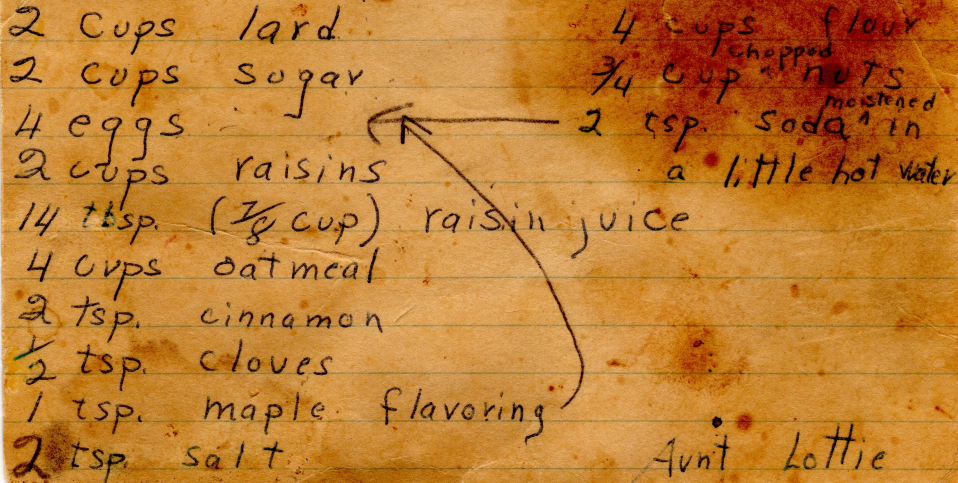 2 cups lard
2 cups sugar
4 eggs
2 cups raisins
14 tbsp. (7/8 cup) raisin juice
4 cups oatmeal
2 tsp. cinnamon
1/2 tsp. cloves
1 tsp. maple flavoring
2 tsp. salt
4 cups flour
3/4 cup ^ chopped nuts
2 tsp. soda ^ moistened in
a little hot water
Aunt Lottie